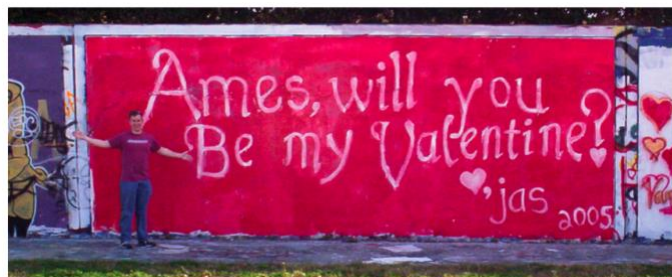 Ames, will you
Be my Valentine?
'jas
2005